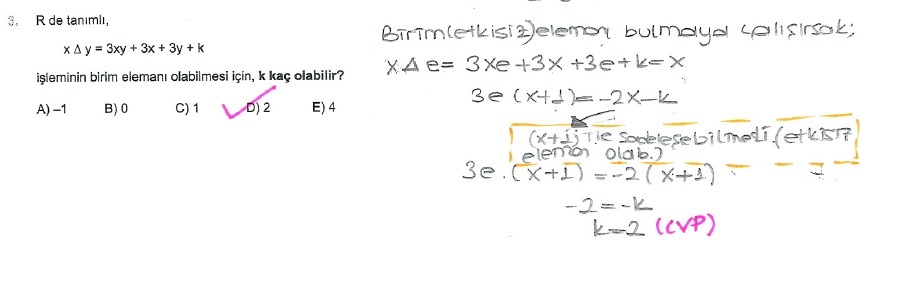 3. R de tanımlı,
x Δ y = 3xy + 3x + 3y + k
işleminin birim elemanı olabilmesi için, k kaç olabilir?
A) –1 B) 0 C) 1 D) 2 E) 4
Birim(etkisiz)eleman bulmaya çalışırsak;
x Δ e = 3xe+3x+3e+k=x
3e(x+1)=-2x-k
(x+1) ile sadeleşebilmeli.(etkisiz
eleman olab.)
3e.(x+1) = -2(x+1)
-2=-k
k=2 (CVP)